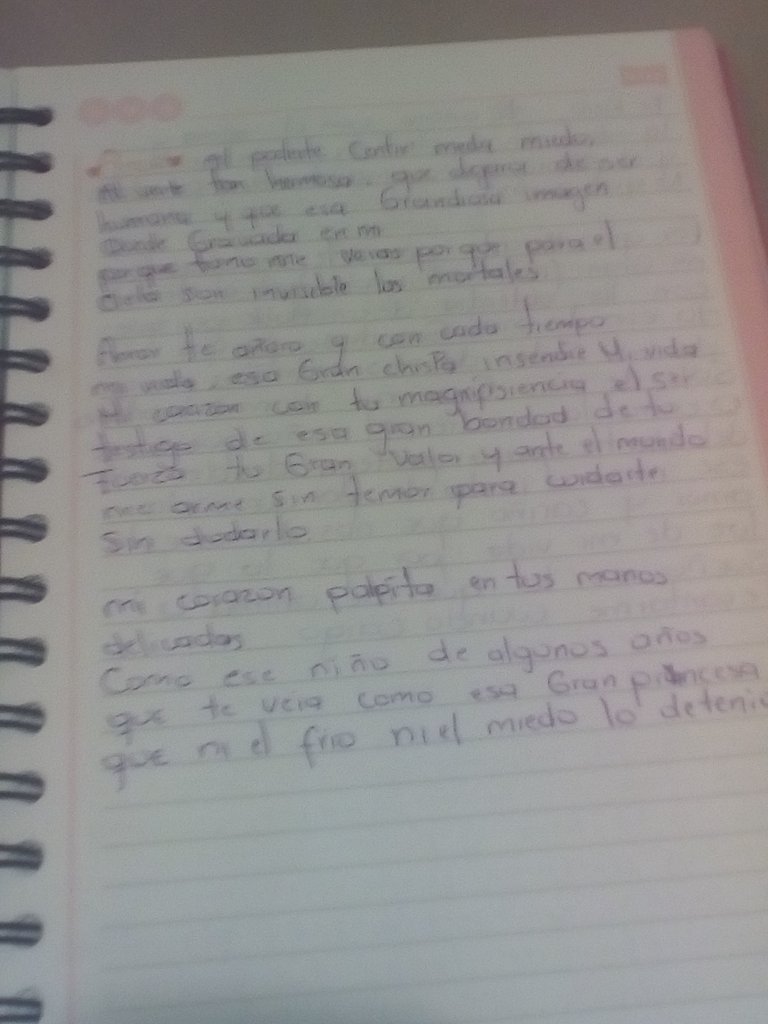 al perderte Sentir miedo
Al verte tan hermosa que dejaras de ser
humana y que esa Grandiosa imagen
Quede Gravada en mi
porque como me vaias por que para el
Cielo son invisible los mortales
Amor te añoro y con cada tiempo
mi vida, esa Gran chispa insendie Mi vida
Mi corazon con tu magnifisiencia el ser
testigo de esa gran bondad de tu
fuerza tu Gran valor y ante el mundo
me arme sin temor para cuidarte
Sin dudarlo
mi corazon palpita en tus manos
delicadas
Como ese niño de algunos años
que te veia como esa Gran princesa
que ni el frio ni el miedo lo detenia